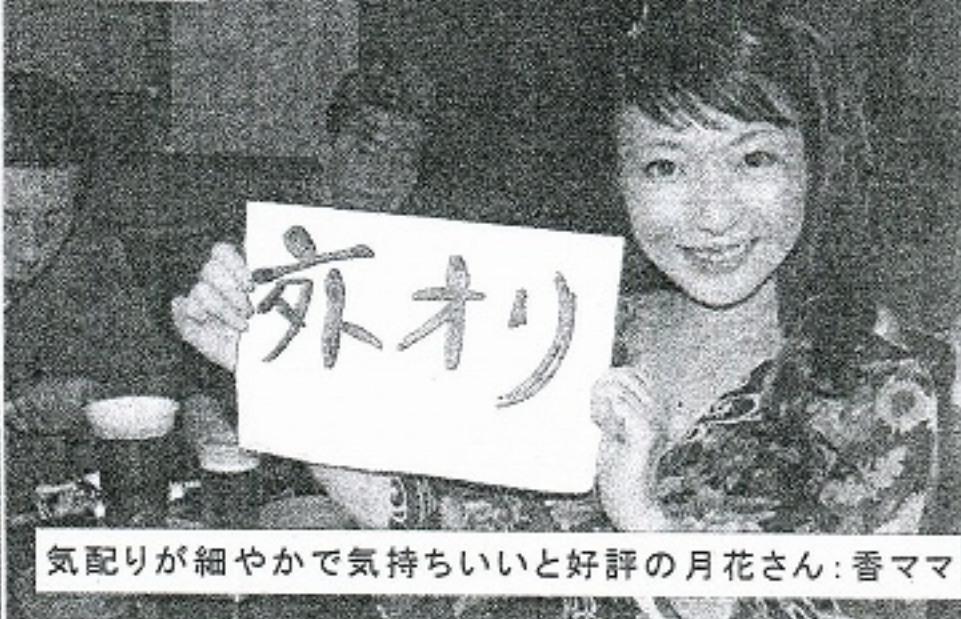 オリ
気配りが細やかで気持ちいいと好評の月花さん:香ママ